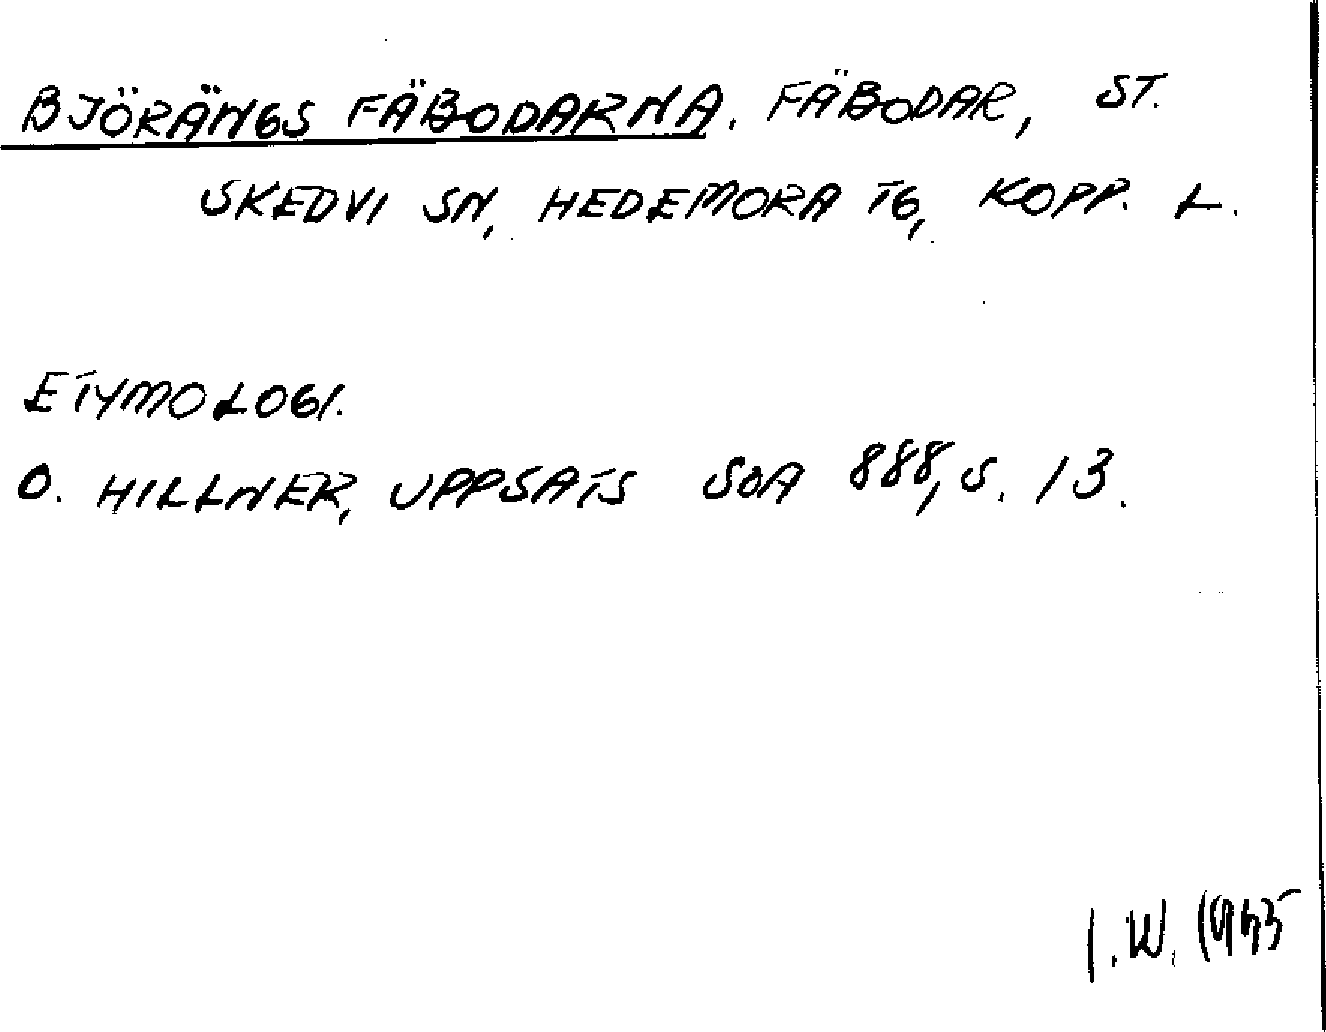 BJÖRÄNGS FÄBODARNA. FÄBODAR, ST.
SKEDVI SN, HEDEMORA TG, KOPP. L.
ETYMOLOGI.
O. HILLNER, UPPSATS SOA 888, S. 13.
I. W.